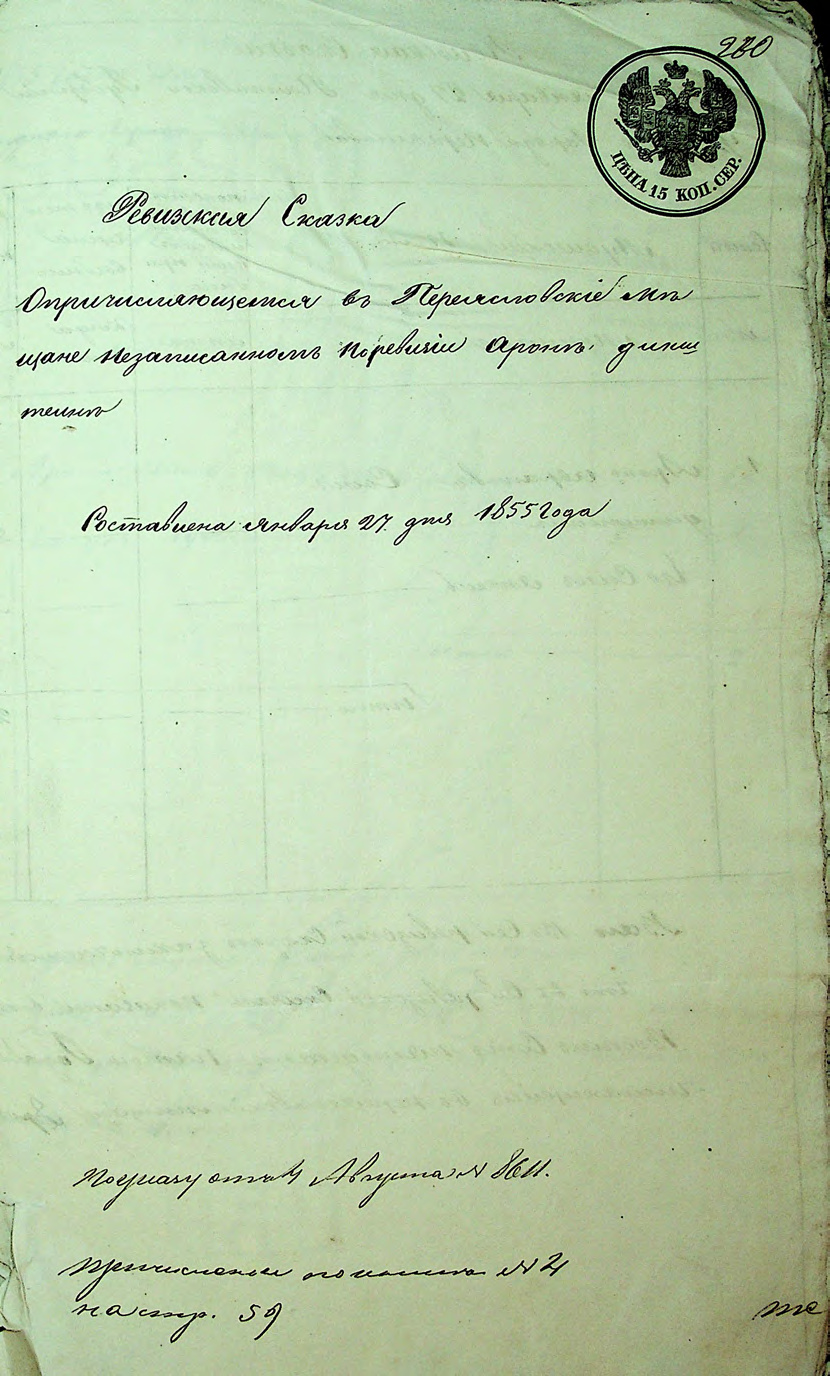 230
ЦѢНА 15 КОП. СЕР.
Ревижкия Сказка
Опричисляющемся въ Переясловскіе мѣ
щане незаписанномъ поревизіи Аронъ динш
теинъ
Составлена Января 27 дня 1855 года
поуказу отъ 4 Августа N 8611.
причисленъ N 24
на стр. 59